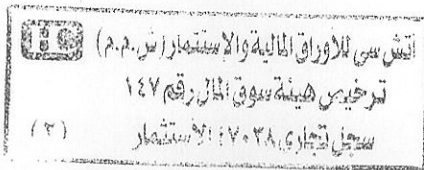 HC
اتش سى للأوراق المالية والإستثمار (ش.م.م)
ترخيص هيئة سوق المال رقم ١٤٧
سجل تجارى ١٧٠٣٨ الاستثمار
(٢)